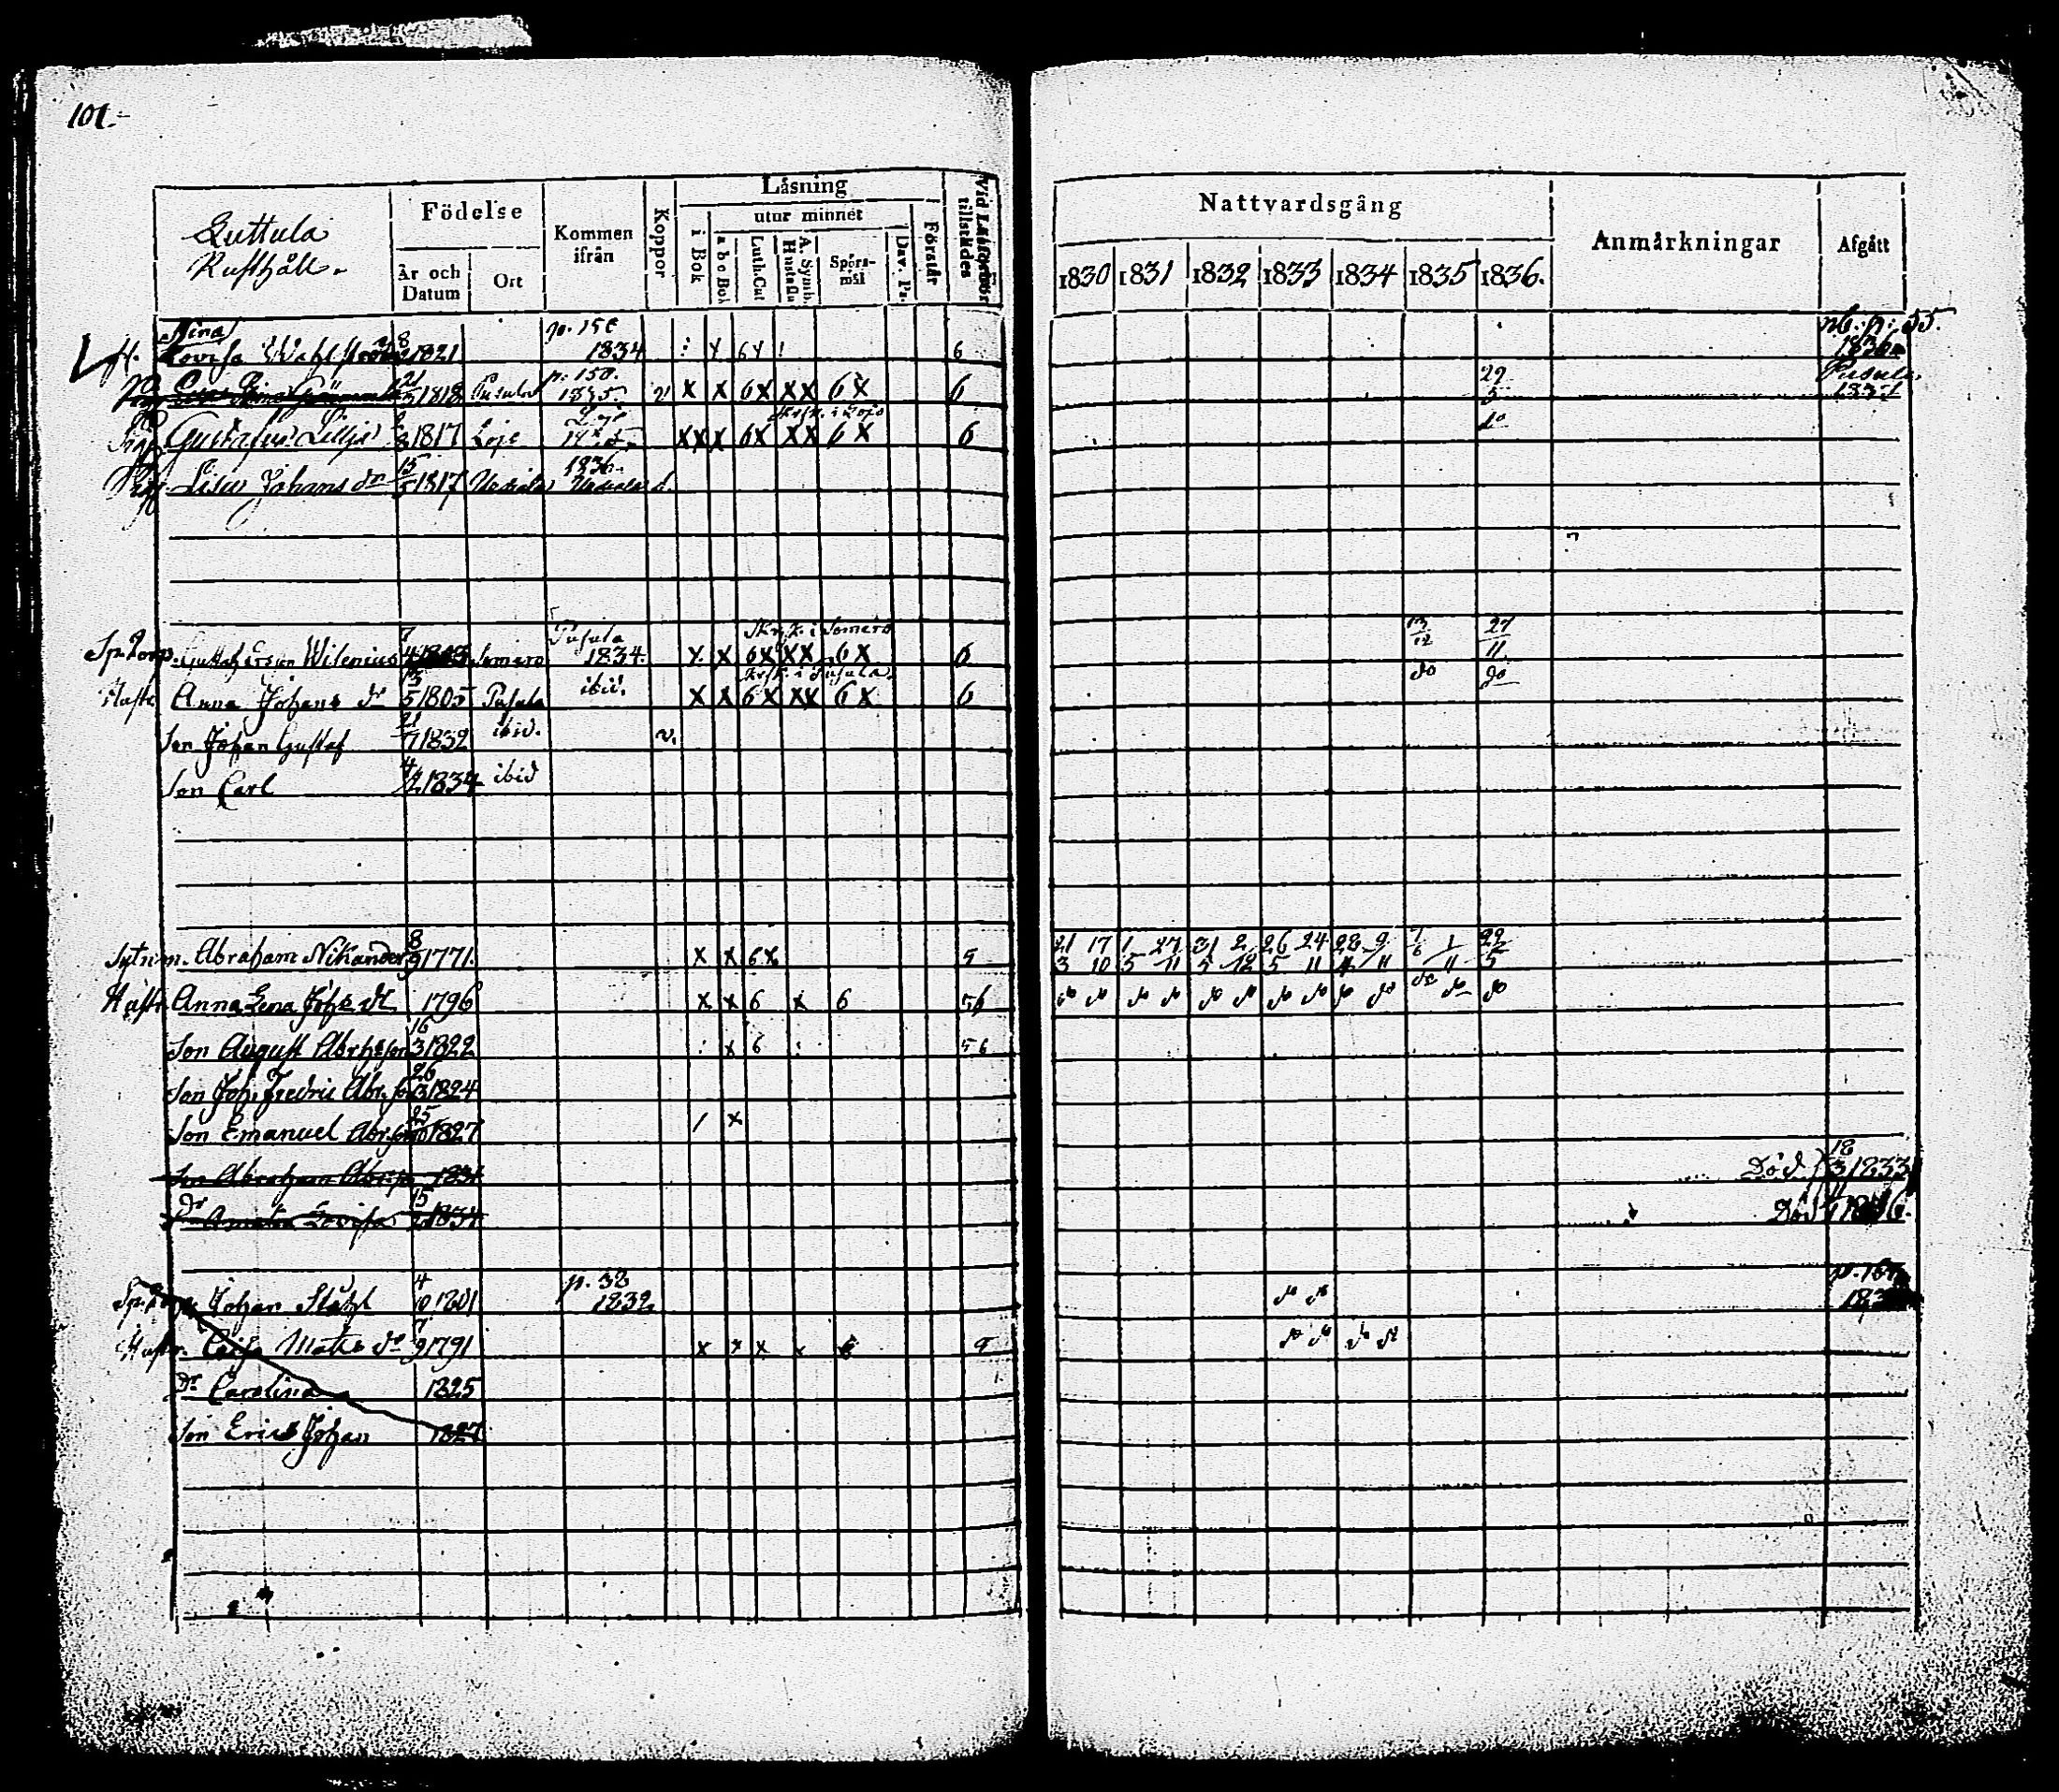 101.
Luttula
Rusthåll.
Födelse
År och Datum
Ort
Kommen ifrån
Koppor
Läsning
i Bok
utur minnet
a b c Bok
Luth. Cat
A. Symb. Hustafla
Spörs-mål
Dav. Ps.
Förstår
Vid Läseförhör tillstådes
Nattvardsgång
1830 1831 1832 1833 1834 1835 1836.
Anmärkningar
Afgått
Stina p. 150 p. 55.
Lovisa 8 1821 1834 6 1836
1818 Pusula p. 150. 1835 v X X 6X XX 6X 6 29 5 Pusula
Gustafva Lillja 1817 Lojo XXX 6X XX 6X 6 do
Lisa Johans dr 15 5 1817 1836.
Sp. Torp. Gustaf Ersson Wilenius 7 4 1803 Somero Pusula 1834. Skrsk. i Somero X X 6X XX 6X 6 13 12 27 11
Hustr. Anna Johans dr 5 1805 Pusula ibid. Skrsk. i Pusula. X X 6X XX 6X 6 do do
Son Johan Gustaf 21 7 1832 ibid. v.
Son Carl 4 12 1834 ibid
Sytn.m. Abraham Nikander 8 9 1771. X X 6X 5 21 3 17 10 1 5 27 11 31 5 2 12 26 5 24 11 28 4 9 11 7 6 1 11 22 5
Hustr. Anna Lena Johs dr 1796 X X 6 X 6 56 do do do do do do do do do do do do do
Son August Abrhson 16 3 1822 : x 6 : 56
Son Joh. Fredric Abr.s. 26 3 1824
Son Emanuel Abr.son 25 10 1827 / x
Son Abraham Abr.s. 1831 Död 18 3 1833
Dr Amalia Lovisa 15 1834 Död
Sp. Johan Ståhl 4 10 1801 p. 32 1832 do do p. 167
Hustr. Caisa Matts dr 7 9 1791 x x x x 6 5 do do do do
Dr Carolina 1825
Son Eric Johan 1827